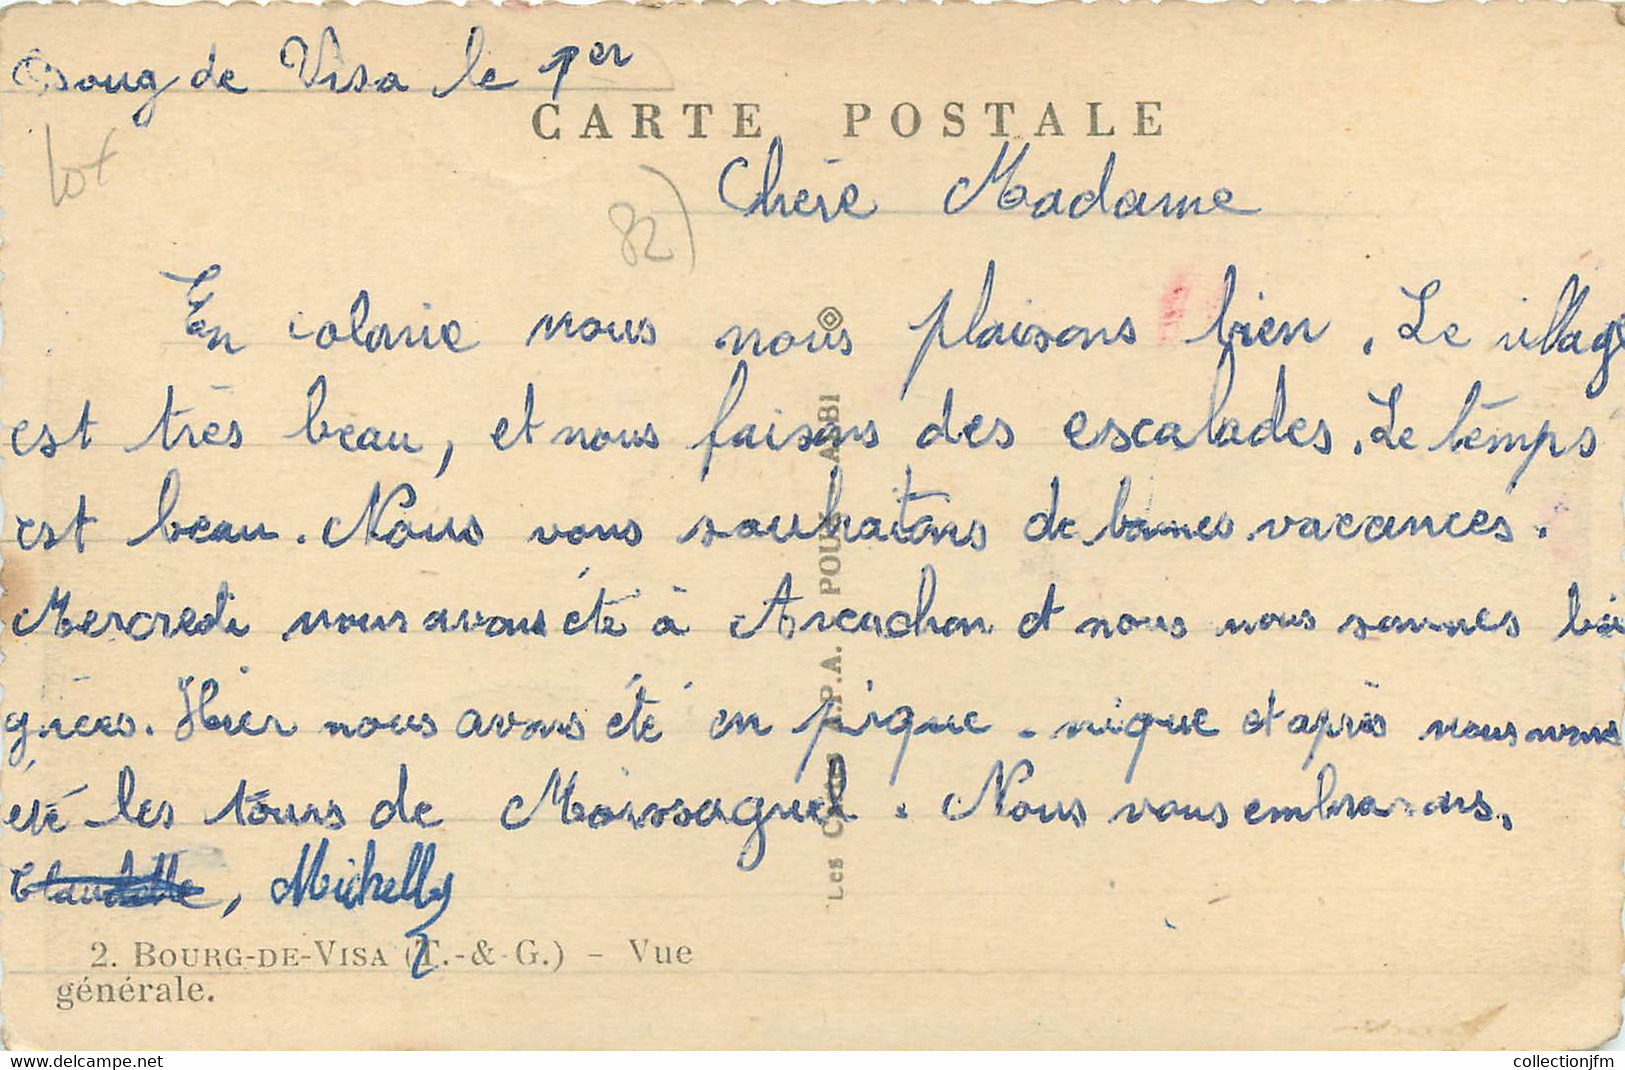 Boug de Visa le 1er
CARTE POSTALE
lot
82)
Chère Madame
En colonie nous nous plaisons bien. Le village
est très beau, et nous faisons des escalades. Le temps
est beau. Nous vous souhaitons de bonnes vacances.
Mercredi nous avons été à Arcachon et nous nous sommes bai
gnées. Hier nous avons été en pique-nique et après nous avons
été les tours de Moissaguel. Nous vous embrassons.
Claudette, Michelle
2. BOURG-DE-VISA (T.-& G.) – Vue
générale.
LES CARTES A.P.A. POUX - ALBI
collectionjfm